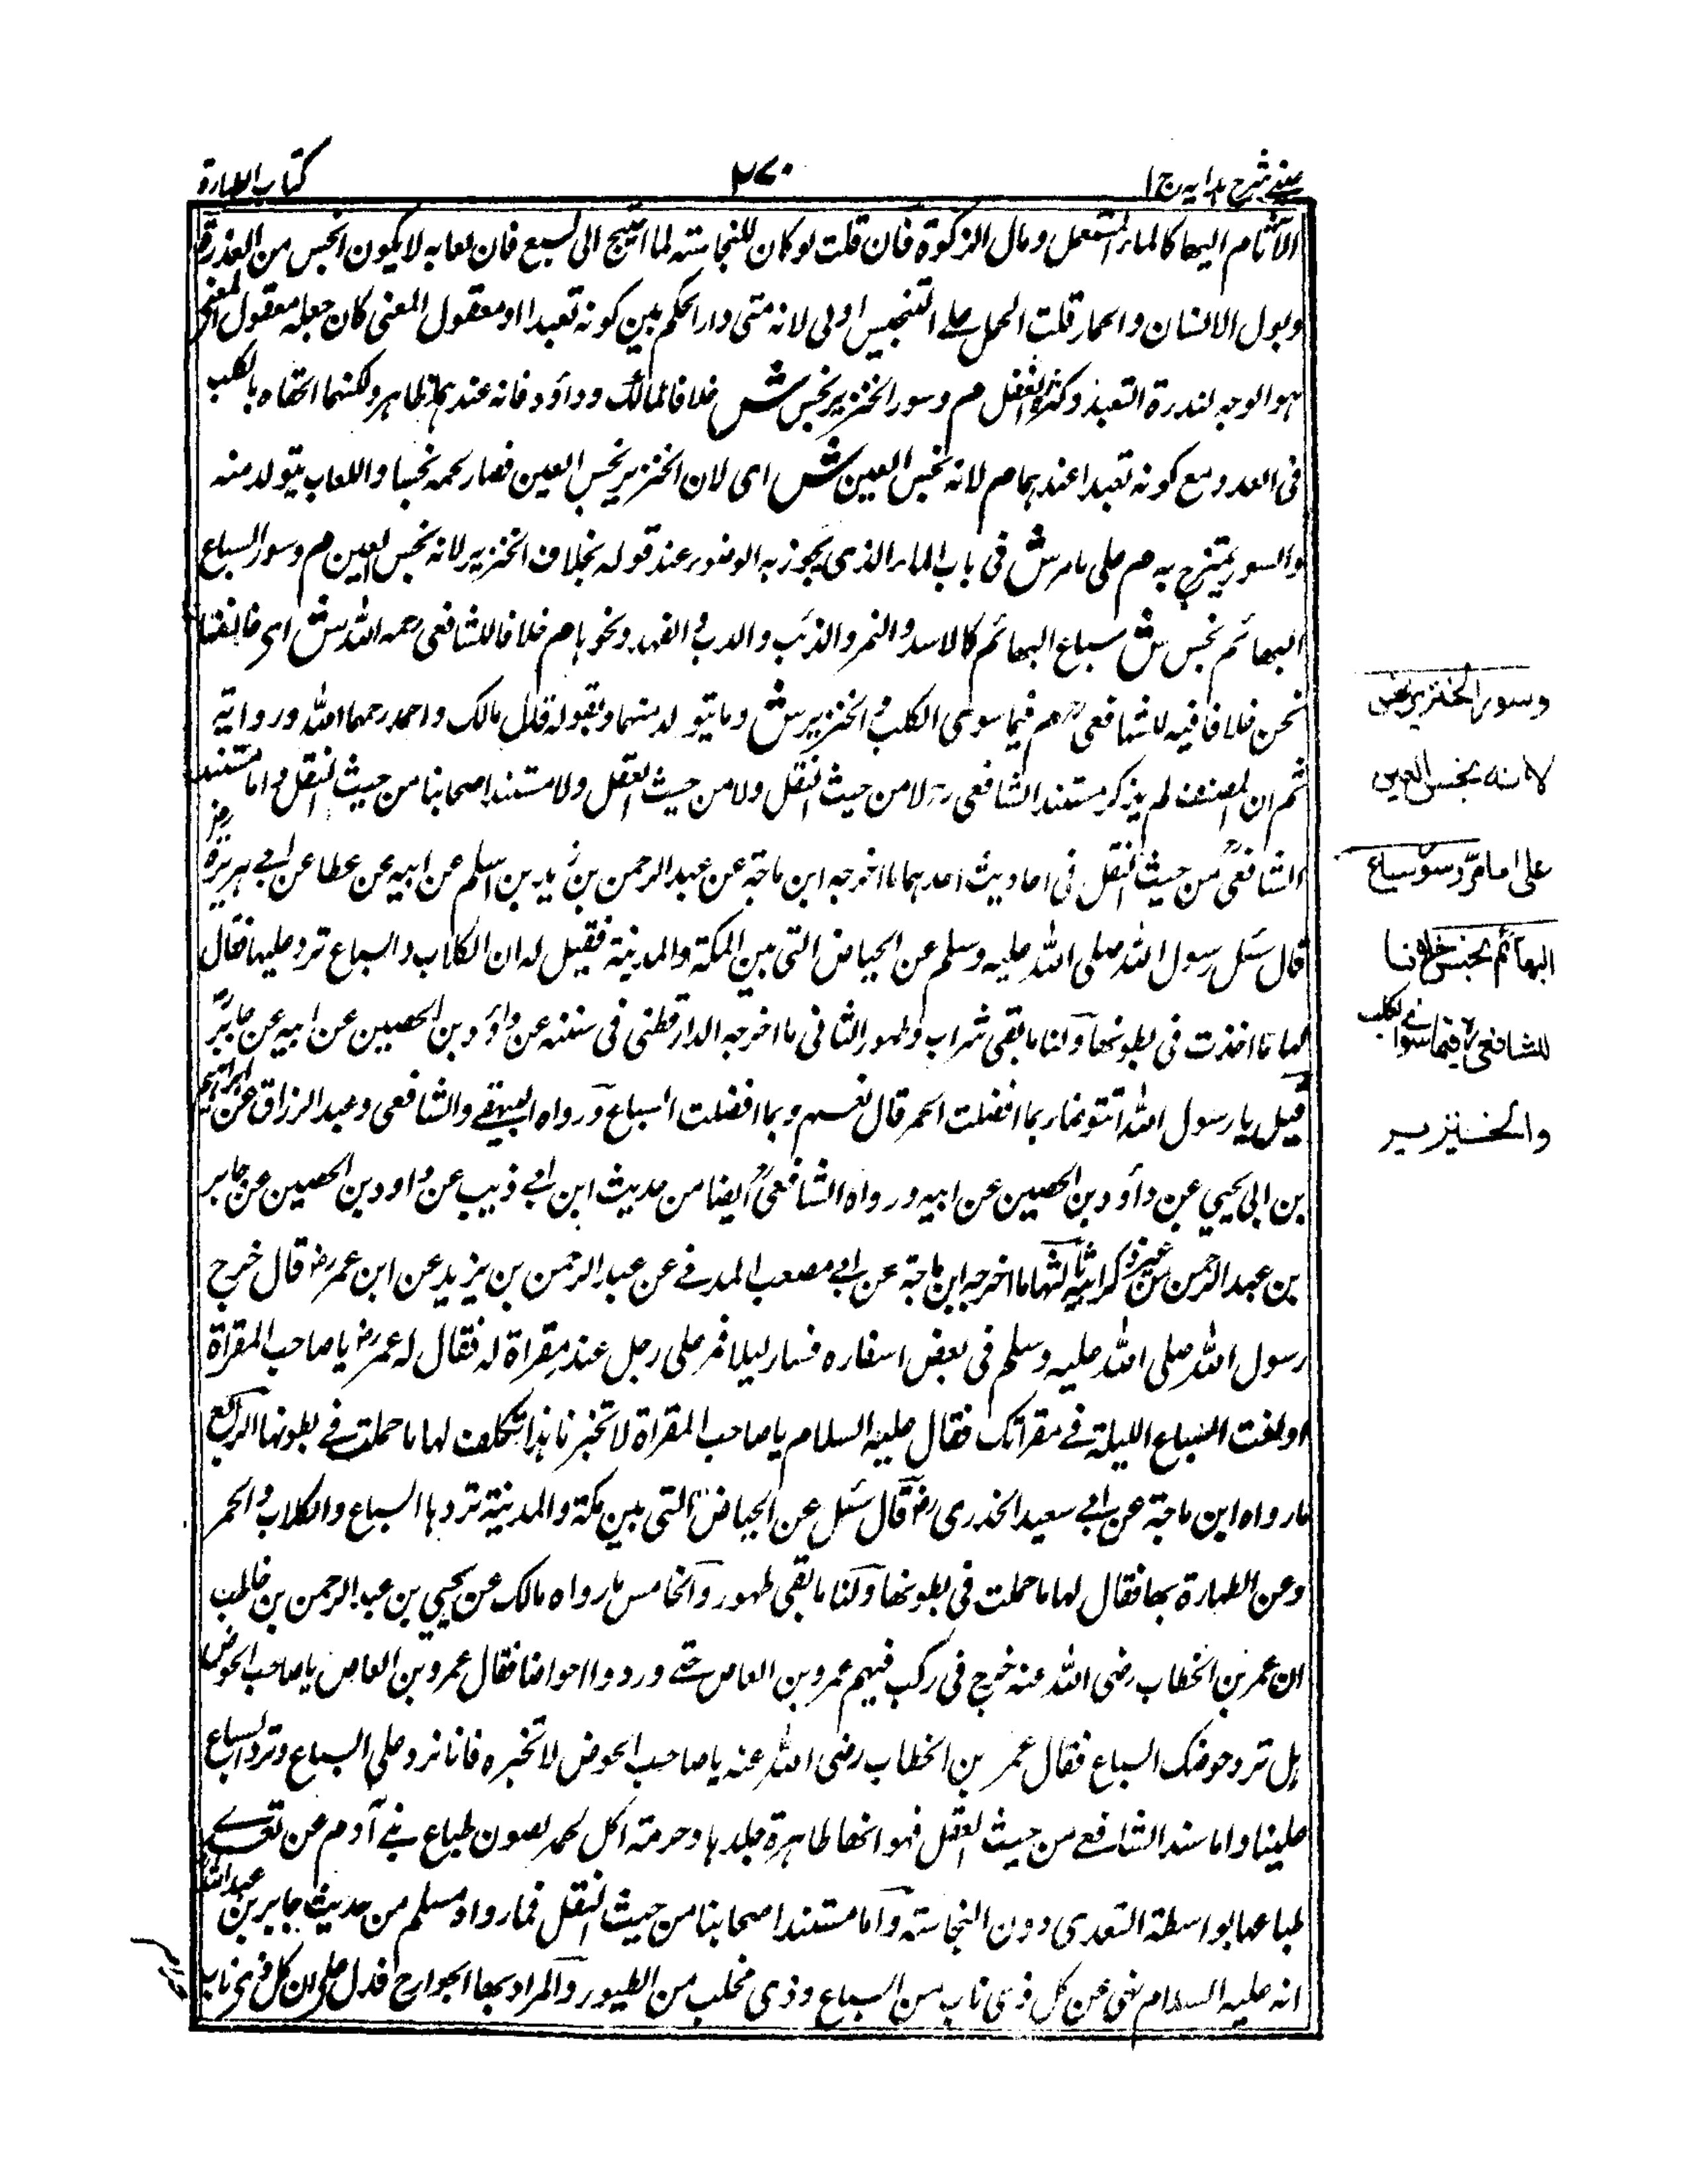 عینی شرح ہدایہ ج ۱
۲۷۰
کتاب الطہارة
الآثام الیھا کالماء المستعمل ومال الزکوة فان قلت لو کان للنجاسة لما احتیج الی السبع فان لعابه لا یکون انجس من العذرة
وبول الانسان والحمار قلت الحمل علی التنجیس اولی لانه متی دار الحکم بین کونه تعبدا او معقول المعنی کان جعله معقول المعنی
ہو الوجه لندرة التعبد وکثرة التعقل م وسور الخنزیر نجس ش خلافا لمالک وداؤد فانه عندہما طاہر ولکنہما الحقاہ بالکلب
فی العدد مع کونه تعبدا عندہما م لانه نجس العین ش ای لان الخنزیر نجس العین فصار لحمه نجسا واللعاب یتولد منه
والسور یمتزج به م علی ما مر ش فی باب الماء الذی یجوز به الوضوء عند قوله بخلاف الخنزیر لانه نجس العین م وسور السباع
البھائم نجس ش سباع البھائم کالاسد والنمر والذئب والدب والفھد ونحوہا م خلافا للشافعی رحمه الله ش ای خالفنا
نحن خلافا فیه للشافعی م فیما سوی الکلب والخنزیر ش وما یتولد منہما وبقوله قال مالک واحمد رحمہما الله وروایة
ثم ان المصنف لم یذکر مستند الشافعی رح لا من حیث النقل ولا من حیث العقل ولا مستند اصحابنا من حیث النقل واما مستند
الشافعی من حیث النقل فی احادیث احدہما ما اخرجه ابن ماجة عن عبد الرحمن بن زید بن اسلم عن ابیه عن عطا عن ابی ہریرة رض
قال سئل رسول الله صلی الله علیه وسلم عن الحیاض التی بین المکة والمدینة فقیل له ان الکلاب والسباع ترد علیہا فقال
لہا ما اخذت فی بطونھا ولنا ما بقی شراب وطہور الثانی ما اخرجه الدارقطنی فی سننه عن داؤد بن الحصین عن ابیه عن جابر
قیل یا رسول الله أنتوضأ بما افضلت الحمر قال نعم وبما افضلت السباع ورواہ البیہقی والشافعی وعبد الرزاق عن ابراہیم
بن ابی یحیی عن داؤد بن الحصین عن ابیه ورواہ الشافعی ایضا من حدیث ابن ابی ذیب عن داود بن الحصین عن جابر
بن عبد الرحمن من غیر ذکر ابیه ثالثہا ما اخرجه ابن ماجة عن ابی مصعب المدنی عن عبد الرحمن بن یزید عن ابن عمر رض قال خرج
رسول الله صلی الله علیه وسلم فی بعض اسفارہ فسار لیلا فمر علی رجل عند مقراة له فقال له عمر رض یا صاحب المقراة
اولغت السباع اللیلة فی مقراتک فقال علیه السلام یا صاحب المقراة لا تخبرنا ہذا تکلف لہا ما حملت فی بطونہا الرابع
ما رواہ ابن ماجة عن ابی سعید الخدری رض قال سئل عن الحیاض التی بین مکة والمدینة تردہا السباع والکلاب والحمر
وعن الطہارة بھا فقال لہا ما حملت فی بطونھا ولنا ما بقی طہور والخامس ما رواہ مالک عن یحیی بن عبد الرحمن بن حاطب
ان عمر بن الخطاب رضی الله عنه خرج فی رکب فیہم عمرو بن العاص حتی وردوا احواضا فقال عمرو بن العاص یا صاحب الحوض
ہل ترد حوضک السباع فقال عمر بن الخطاب رضی الله عنه یا صاحب الحوض لا تخبرہ فانا نرد علی السباع وترد السباع
علینا واما سند الشافعی من حیث العقل فہو انھا طاہرة جلدہا وحرمة اکل لحمه لصون طباع بنی آدم عن تعدی
طباعہا بواسطة التعدی دون النجاسة واما مستند اصحابنا من حیث النقل فما رواہ مسلم من حدیث جابر بن عبد الله
انه علیه السلام نھی عن کل ذی ناب من السباع وذی مخلب من الطیور والمراد بھا الجوارح فدل علی ان کل ذی ناب
وسور الخنزیر نجس
لانه نجس العین
علی ما مر وسور سباع
البھائم نجس خلافا
للشافعی رح فیما سوی الکلب
والخنزیر